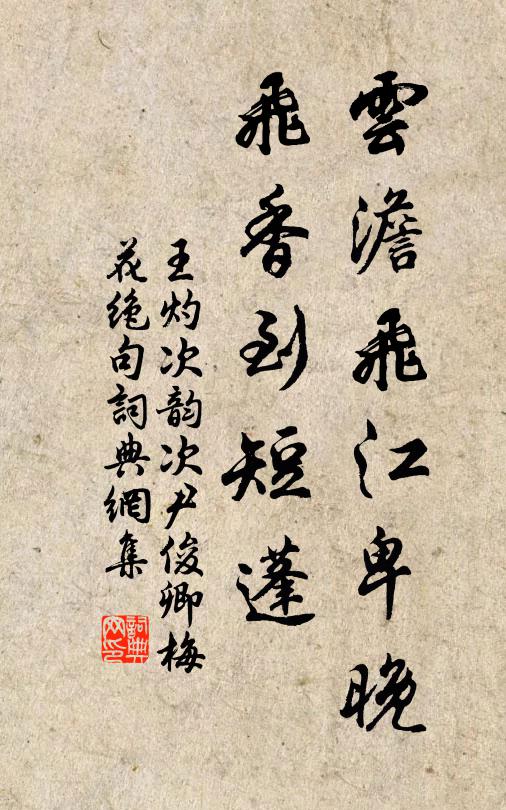 雲澹飛江卑晚
飛香到短蓬
王灼次韵次尹俊卿梅
花绝句詞典網集
詞典网印